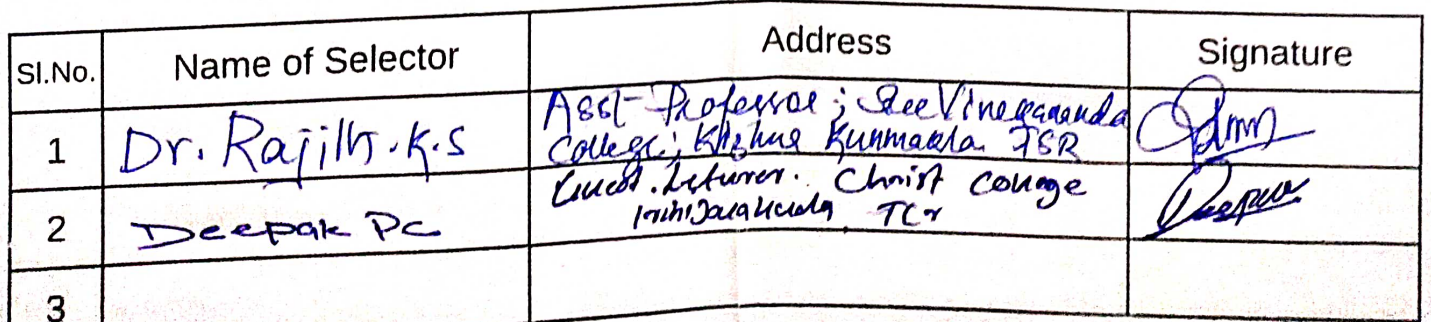 Sl.No. Name of Selector Address Signature
1 Dr. Rajith.K.S Asst-Professor; SreeVivekananda
College; Kunmakla. TSR
2 Deepak PC Guest.Leturer. Christ College
TCr
3